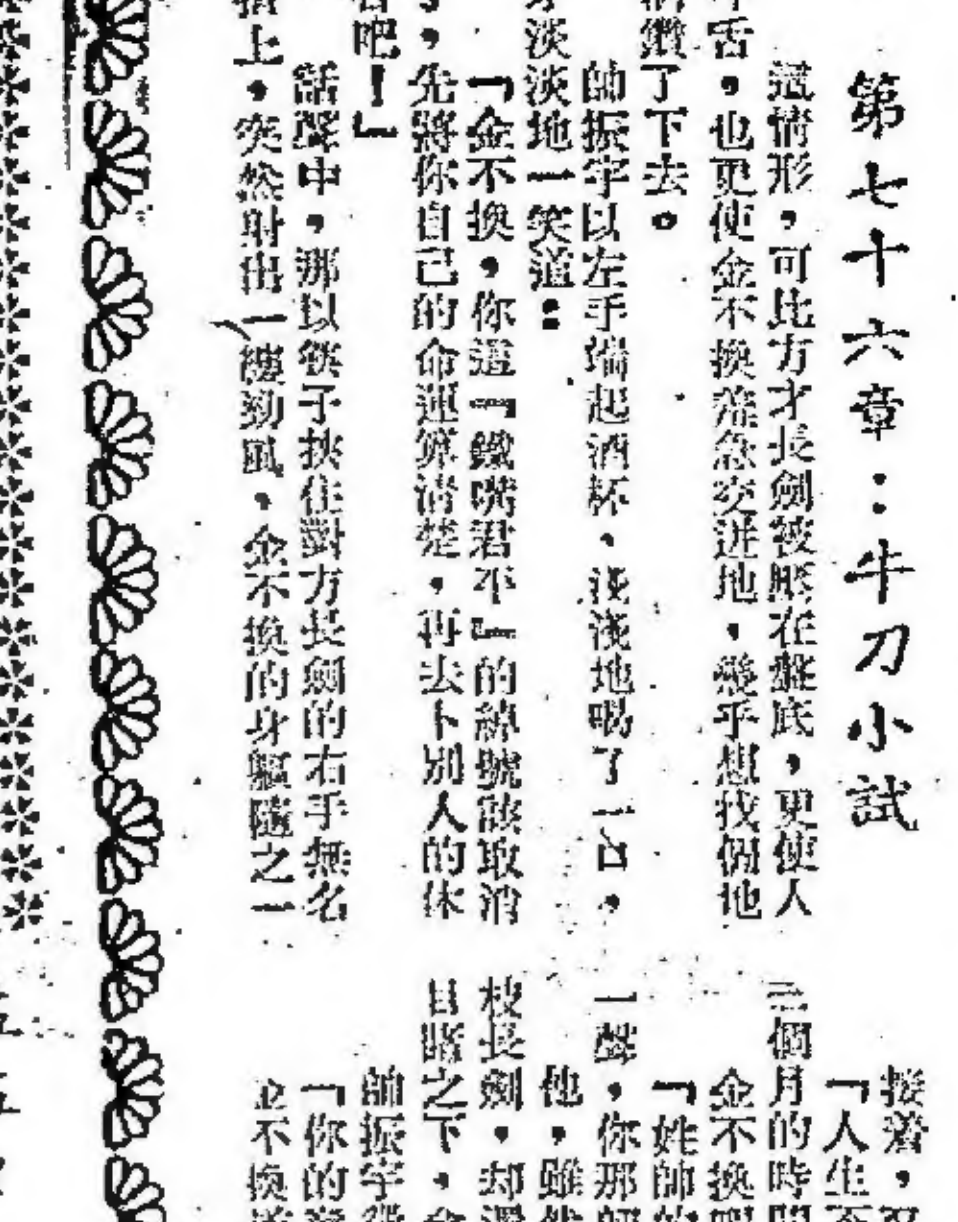 第七十六章：牛刀小試
這情形，可比方才長劍被壓在盤底，更使人
舌，也更使金不換羞急交迸地，幾乎想找個地
鑽了下去。
帥振宇以左手端起酒杯，淺淺地喝了一口，
淡淡地一笑道：
「金不換，你這『鐵嘴君平』的綽號該取消
，先將你自己的命運算清楚，再去卜別人的休
吧！』
話聲中，那以筷子挾住對方長劍的右手無名
指上，突然射出一縷勁風，金不換的身軀隨之一
接着，
「人生
三個月的時間
金不換
「姓帥的
一聲，你那
他，雖
枝長劍，却還
目睹之下，金
帥振宇
「你的
金不換道